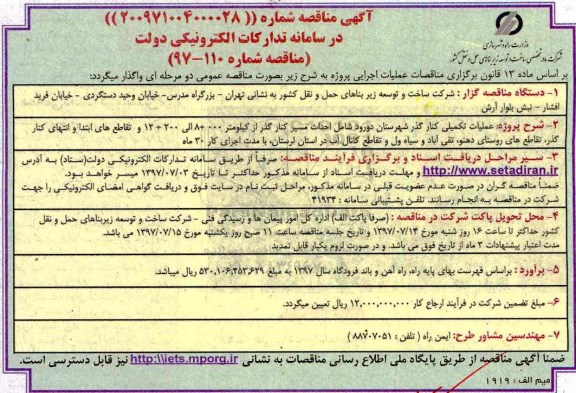 آگهی مناقصه شماره (( ۲۰۰۹۷۱۰۰۴۰۰۰۰۲۸ ))
در سامانه تدارکات الکترونیکی دولت
(مناقصه شماره ۱۱۰-۹۷)
وزارت راه و شهرسازی
شرکت ساخت و توسعه زیربناهای حمل و نقل کشور
بر اساس ماده ۱۳ قانون برگزاری مناقصات عملیات اجرایی پروژه به شرح زیر بصورت مناقصه عمومی دو مرحله ای واگذار میگردد:
۱- دستگاه مناقصه گزار : شرکت ساخت و توسعه زیر بناهای حمل و نقل کشور به نشانی تهران - بزرگراه مدرس- خیابان وحید دستگردی - خیابان فرید
افشار - نبش بلوار آرش
۲- شرح پروژه: عملیات تکمیلی کنار گذر شهرستان دورود شامل احداث مسیر کنار گذر از کیلومتر ۰۰۰+۸ الی ۲۰۰+۱۲ و تقاطع های ابتدا و انتهای کنار
گذر، تقاطع های روستای دهنو، تقی آباد و سیاه ول و تقاطع کانال آب در استان لرستان، با مدت اجرای کار ۳۰ ماه
۳- سیر مراحل دریافت اسناد و برگزاری فرآیند مناقصه: صرفاً از طریق سامانه تدارکات الکترونیکی دولت(ستاد) به آدرس
http://www.setadiran.ir و مهلت دریافت اسناد از سامانه مذکور حداکثر تا تاریخ ۱۳۹۷/۰۷/۰۳ میسر خواهد بود.
ضمنا مناقصه گران در صورت عدم عضویت قبلی در سامانه مذکور، مراحل ثبت نام در سایت فوق و دریافت گواهی امضای الکترونیکی را جهت
شرکت در مناقصه به انجام رسانند. تلفن پشتیبانی سامانه : ۴۱۹۳۴
۴- محل تحویل پاکت شرکت در مناقصه : (صرفا پاکت الف) اداره کل امور پیمان ها و رسیدگی فنی - شرکت ساخت و توسعه زیربناهای حمل و نقل
کشور حداکثر تا ساعت ۱۶ روز شنبه مورخ ۱۳۹۷/۰۷/۱۴ و تاریخ جلسه مناقصه ساعت ۱۱ صبح روز یکشنبه مورخ ۱۳۹۷/۰۷/۱۵ می باشد.
مدت اعتبار پیشنهادات ۳ ماه از تاریخ فوق می باشد. و در صورت لزوم یکبار قابل تمدید
۵- برآورد : براساس فهرست بهای پایه راه، راه آهن و باند فرودگاه سال ۱۳۹۷ به مبلغ ۵۳۰,۱۰۶,۳۵۳,۶۲۹ ریال میباشد.
۶- مبلغ تضمین شرکت در فرآیند ارجاع کار ۱۲,۰۰۰,۰۰۰,۰۰۰ ریال تعیین میگردد.
۷- مهندسین مشاور طرح: ایمن راه ( تلفن : ۸۸۷۰۷۰۵۱ )
ضمنا آگهی مناقصه از طریق پایگاه ملی اطلاع رسانی مناقصات به نشانی http://iets.mporg.ir نیز قابل دسترسی است.
میم الف : ۱۹۱۹